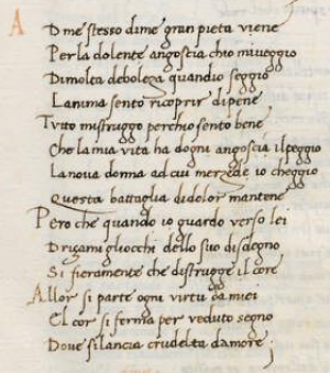 A Dme stesso dime gran pieta viene
Per la dolente angoscia chio miveggio
Dimolta deboleza quandio seggio
Lanima sento ricoprir dipene
Tutto mistruggo perchio sento bene
Che la mia vita ha dogni angoscia ilpeggio
La nova donna ad cui merzede io cheggio
Questa battaglia didolor mantene
Pero che quando io guardo verso lei
Drizami gliocchi dello suo disdegno
Si fieramente che distrugge il core
Allor si parte ogni virtu da miei
El cor si ferma per veduto segno
Dove silancia crudelta damore